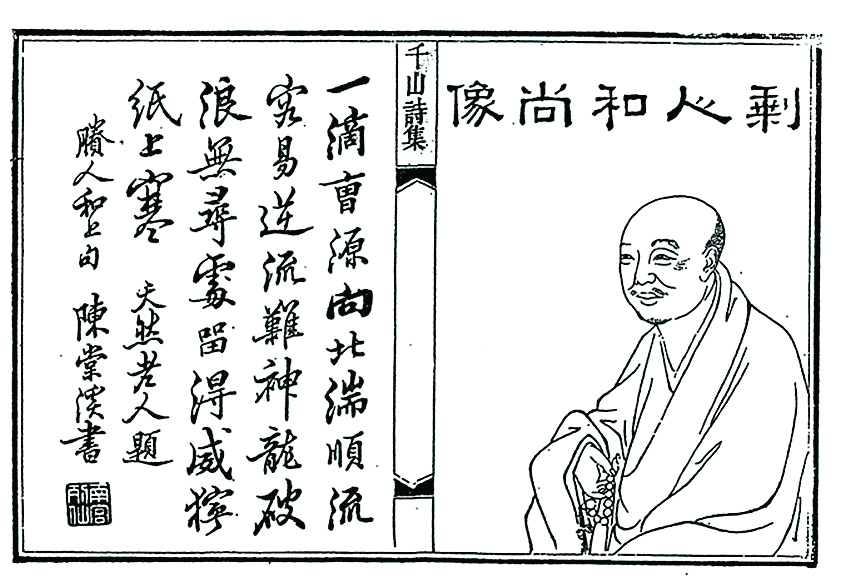 剩人和尚像
千山詩集
一滴曹源向北湍順流
容易逆流難神龍破
浪無尋處留得威獰
紙上寒 天然老人題
賸人和上句 陳棠溪書